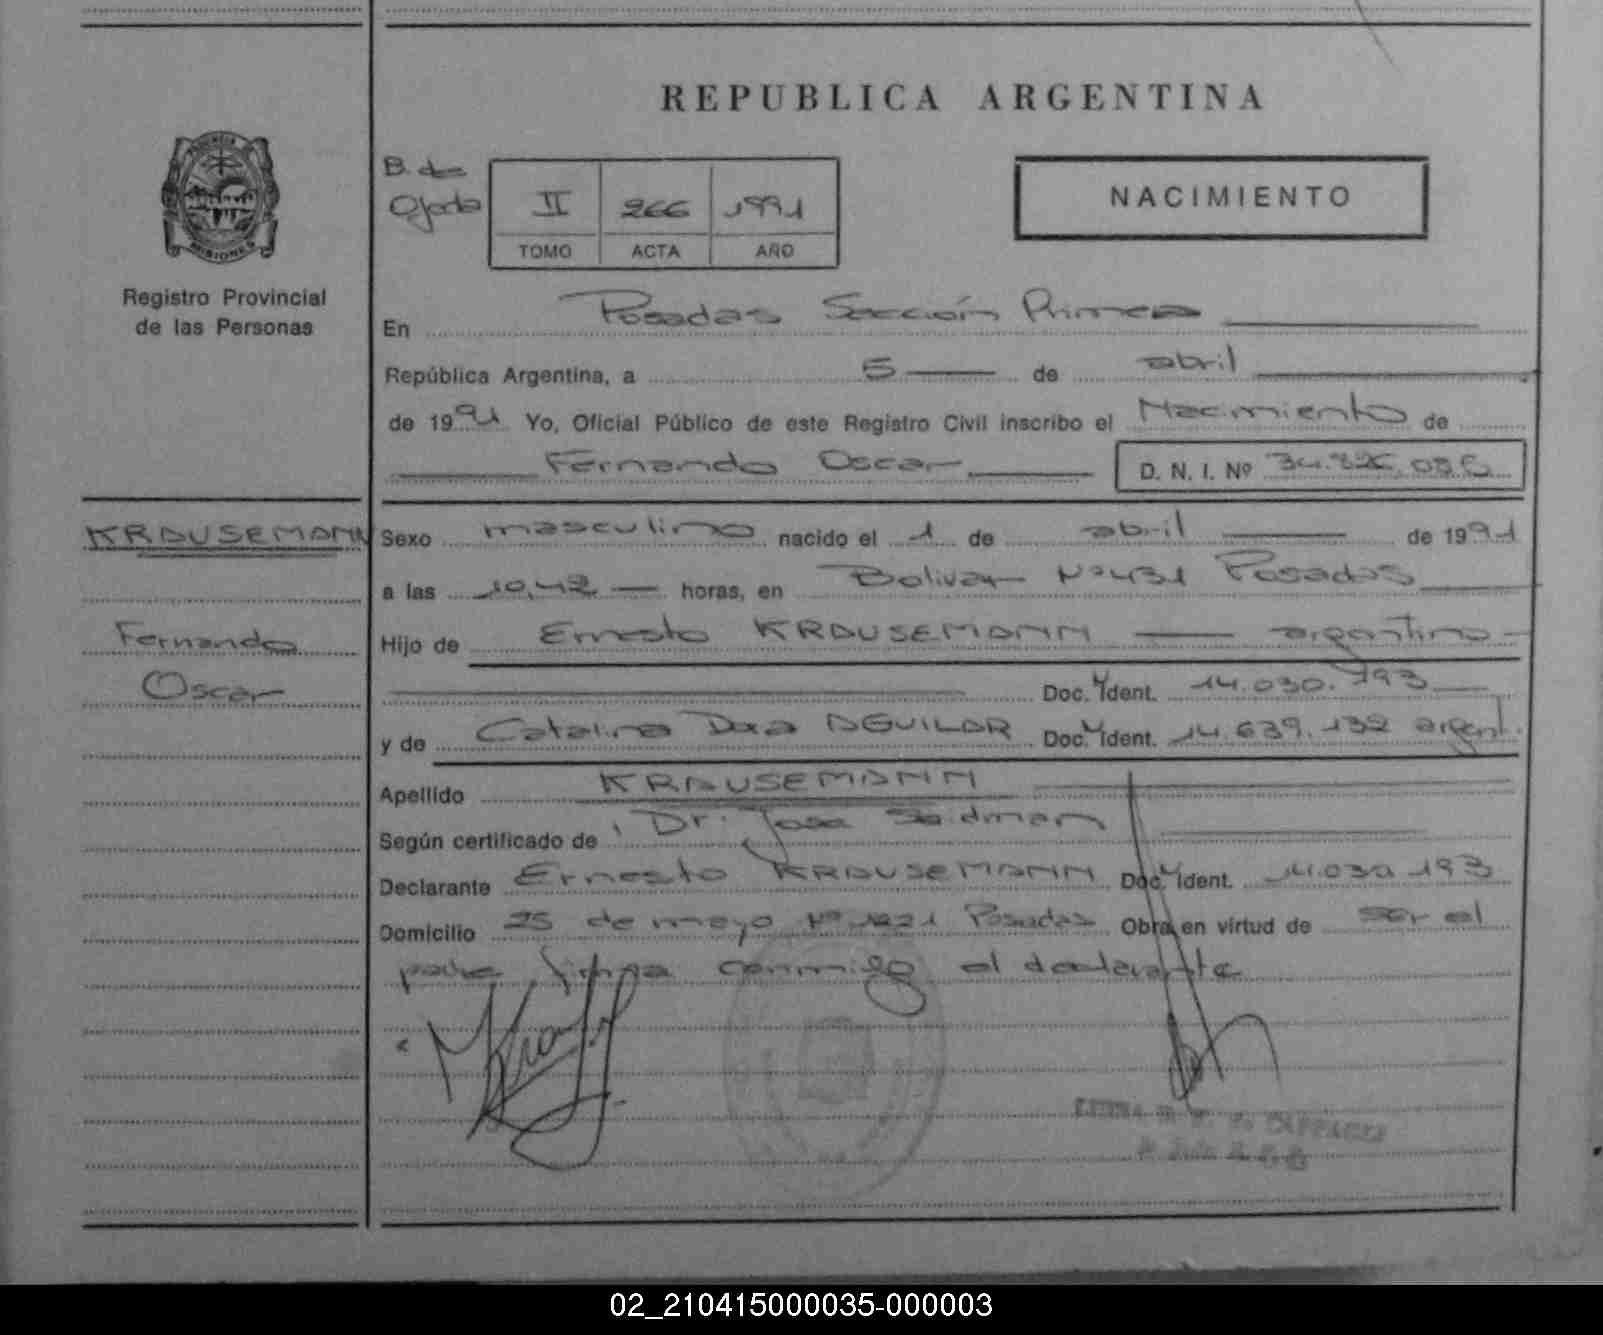 REPUBLICA ARGENTINA
PROVINCIA
MISIONES
Registro Provincial
de las Personas
B. de
II 266 1991
TOMO ACTA AÑO
NACIMIENTO
En Posadas Sección Primera
República Argentina, a 5 de abril
de 1991 Yo, Oficial Público de este Registro Civil inscribo el Nacimiento de
Fernando Oscar D. N. I. Nº
KRAUSEMANN
Fernando
Oscar
Sexo masculino nacido el 1 de abril de 1991
a las 10,42 horas, en Bolivar Nº 431 Posadas
Hijo de Ernesto KRAUSEMANN argentino
Doc. Ident. 14.030.793
y de Catalina Dora AGUILAR Doc. Ident. 14.639.132 argent.
Apellido KRAUSEMANN
Según certificado de Dr. Jose Seidman
Declarante Ernesto KRAUSEMANN Doc. Ident.
Domicilio 25 de mayo Nº Posadas Obra en virtud de ser el
padre firma conmigo el declarante
02_210415000035-000003